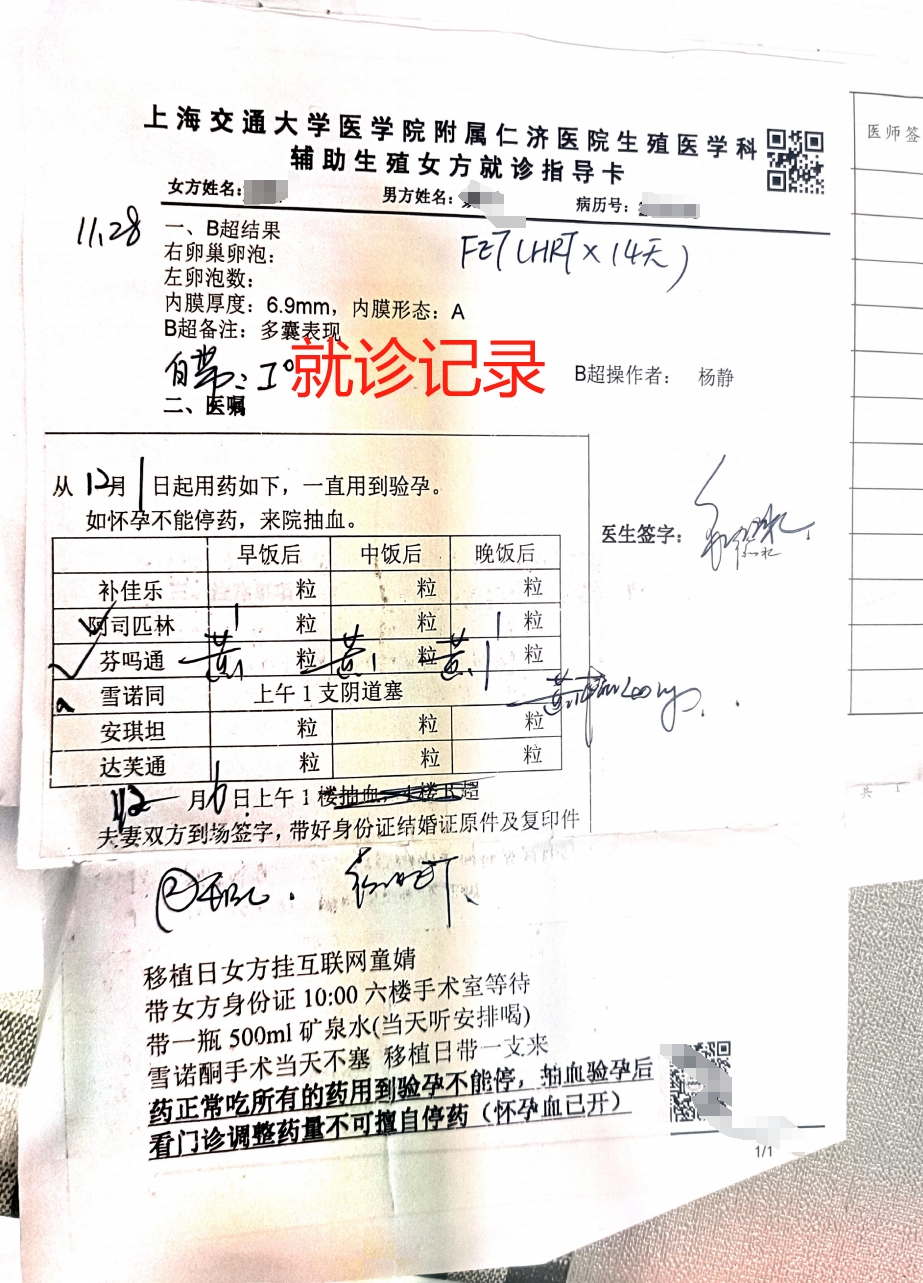 上海交通大学医学院附属仁济医院生殖医学科
辅助生殖女方就诊指导卡
医师签
女方姓名: 男方姓名: 病历号:
11.28
一、B超结果
FET(HRT×14天)
右卵巢卵泡:
左卵泡数:
内膜厚度: 6.9mm, 内膜形态: A
B超备注: 多囊表现
就诊记录
B超操作者: 杨静
二、医嘱
从12月1日起用药如下,一直用到验孕。
如怀孕不能停药,来院抽血。
医生签字:
早饭后 中饭后 晚饭后
补佳乐 粒 粒 粒
阿司匹林 1 粒 粒 1 粒
芬吗通 黄1 粒 黄1 粒 黄1 粒
雪诺同 上午1支阴道塞
安琪坦 粒 粒 粒
达芙通 粒 粒 粒
12月6日上午1楼抽血,4楼B超
共 1
夫妻双方到场签字,带好身份证结婚证原件及复印件
移植日女方挂互联网童婧
带女方身份证 10:00 六楼手术室等待
带一瓶 500ml 矿泉水(当天听安排喝)
雪诺酮手术当天不塞 移植日带一支来
药正常吃所有的药用到验孕不能停,抽血验孕后
看门诊调整药量不可擅自停药(怀孕血已开)
1/1